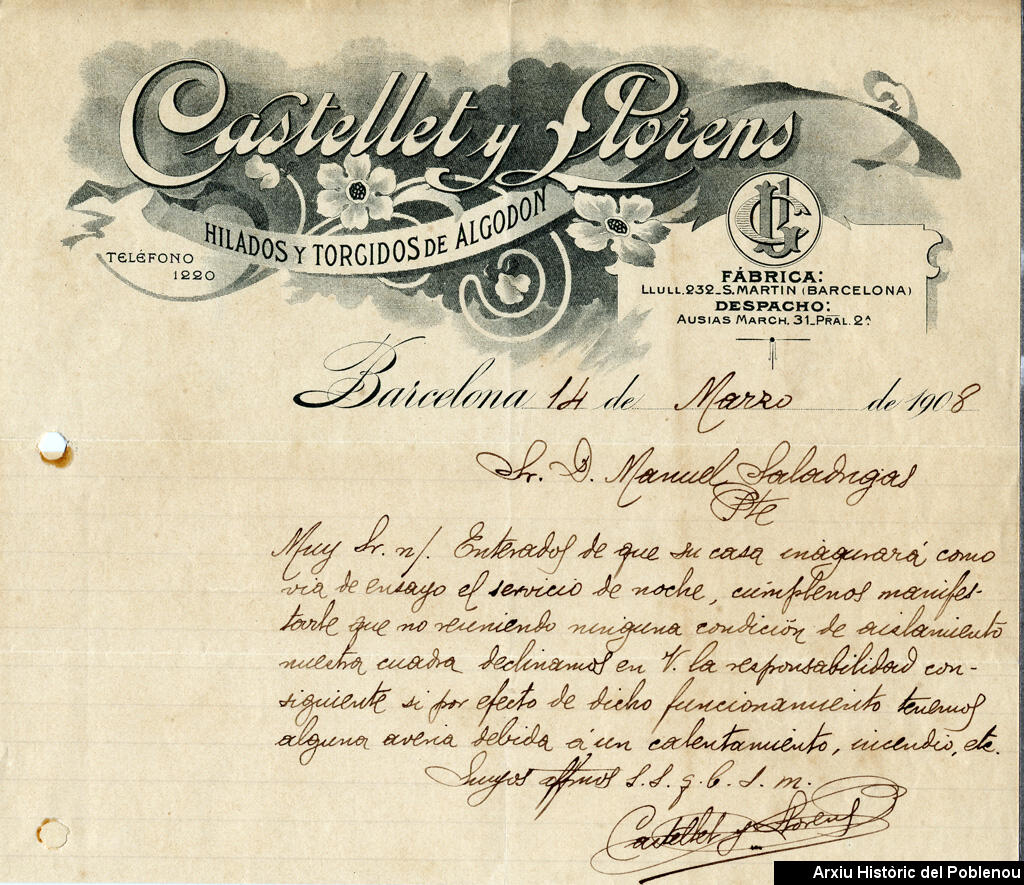 Castellet y Llorens
HILADOS Y TORCIDOS DE ALGODON
TELÉFONO
1220
FÁBRICA:
LLULL, 232_S. MARTIN (BARCELONA)
DESPACHO:
AUSIAS MARCH, 31_PRAL. 2ª
Barcelona 14 de Marzo de 1908
Sr. D. Manuel Saladrigas
Pte
Muy Sr. n/. Enterados de que su casa inagurará como
via de ensayo el servicio de noche, cúmplenos manifes-
tarle que no reuniendo ninguna condición de aislamiento
nuestra cuadra declinamos en V. la responsabilidad con-
siguiente si por efecto de dicho funcionamiento tenemos
alguna averia debida á un calentamiento, incendio, etc.
Suyos affmos S. S. q. b. s. m.
Castellet y Llorens
Arxiu Històric del Poblenou